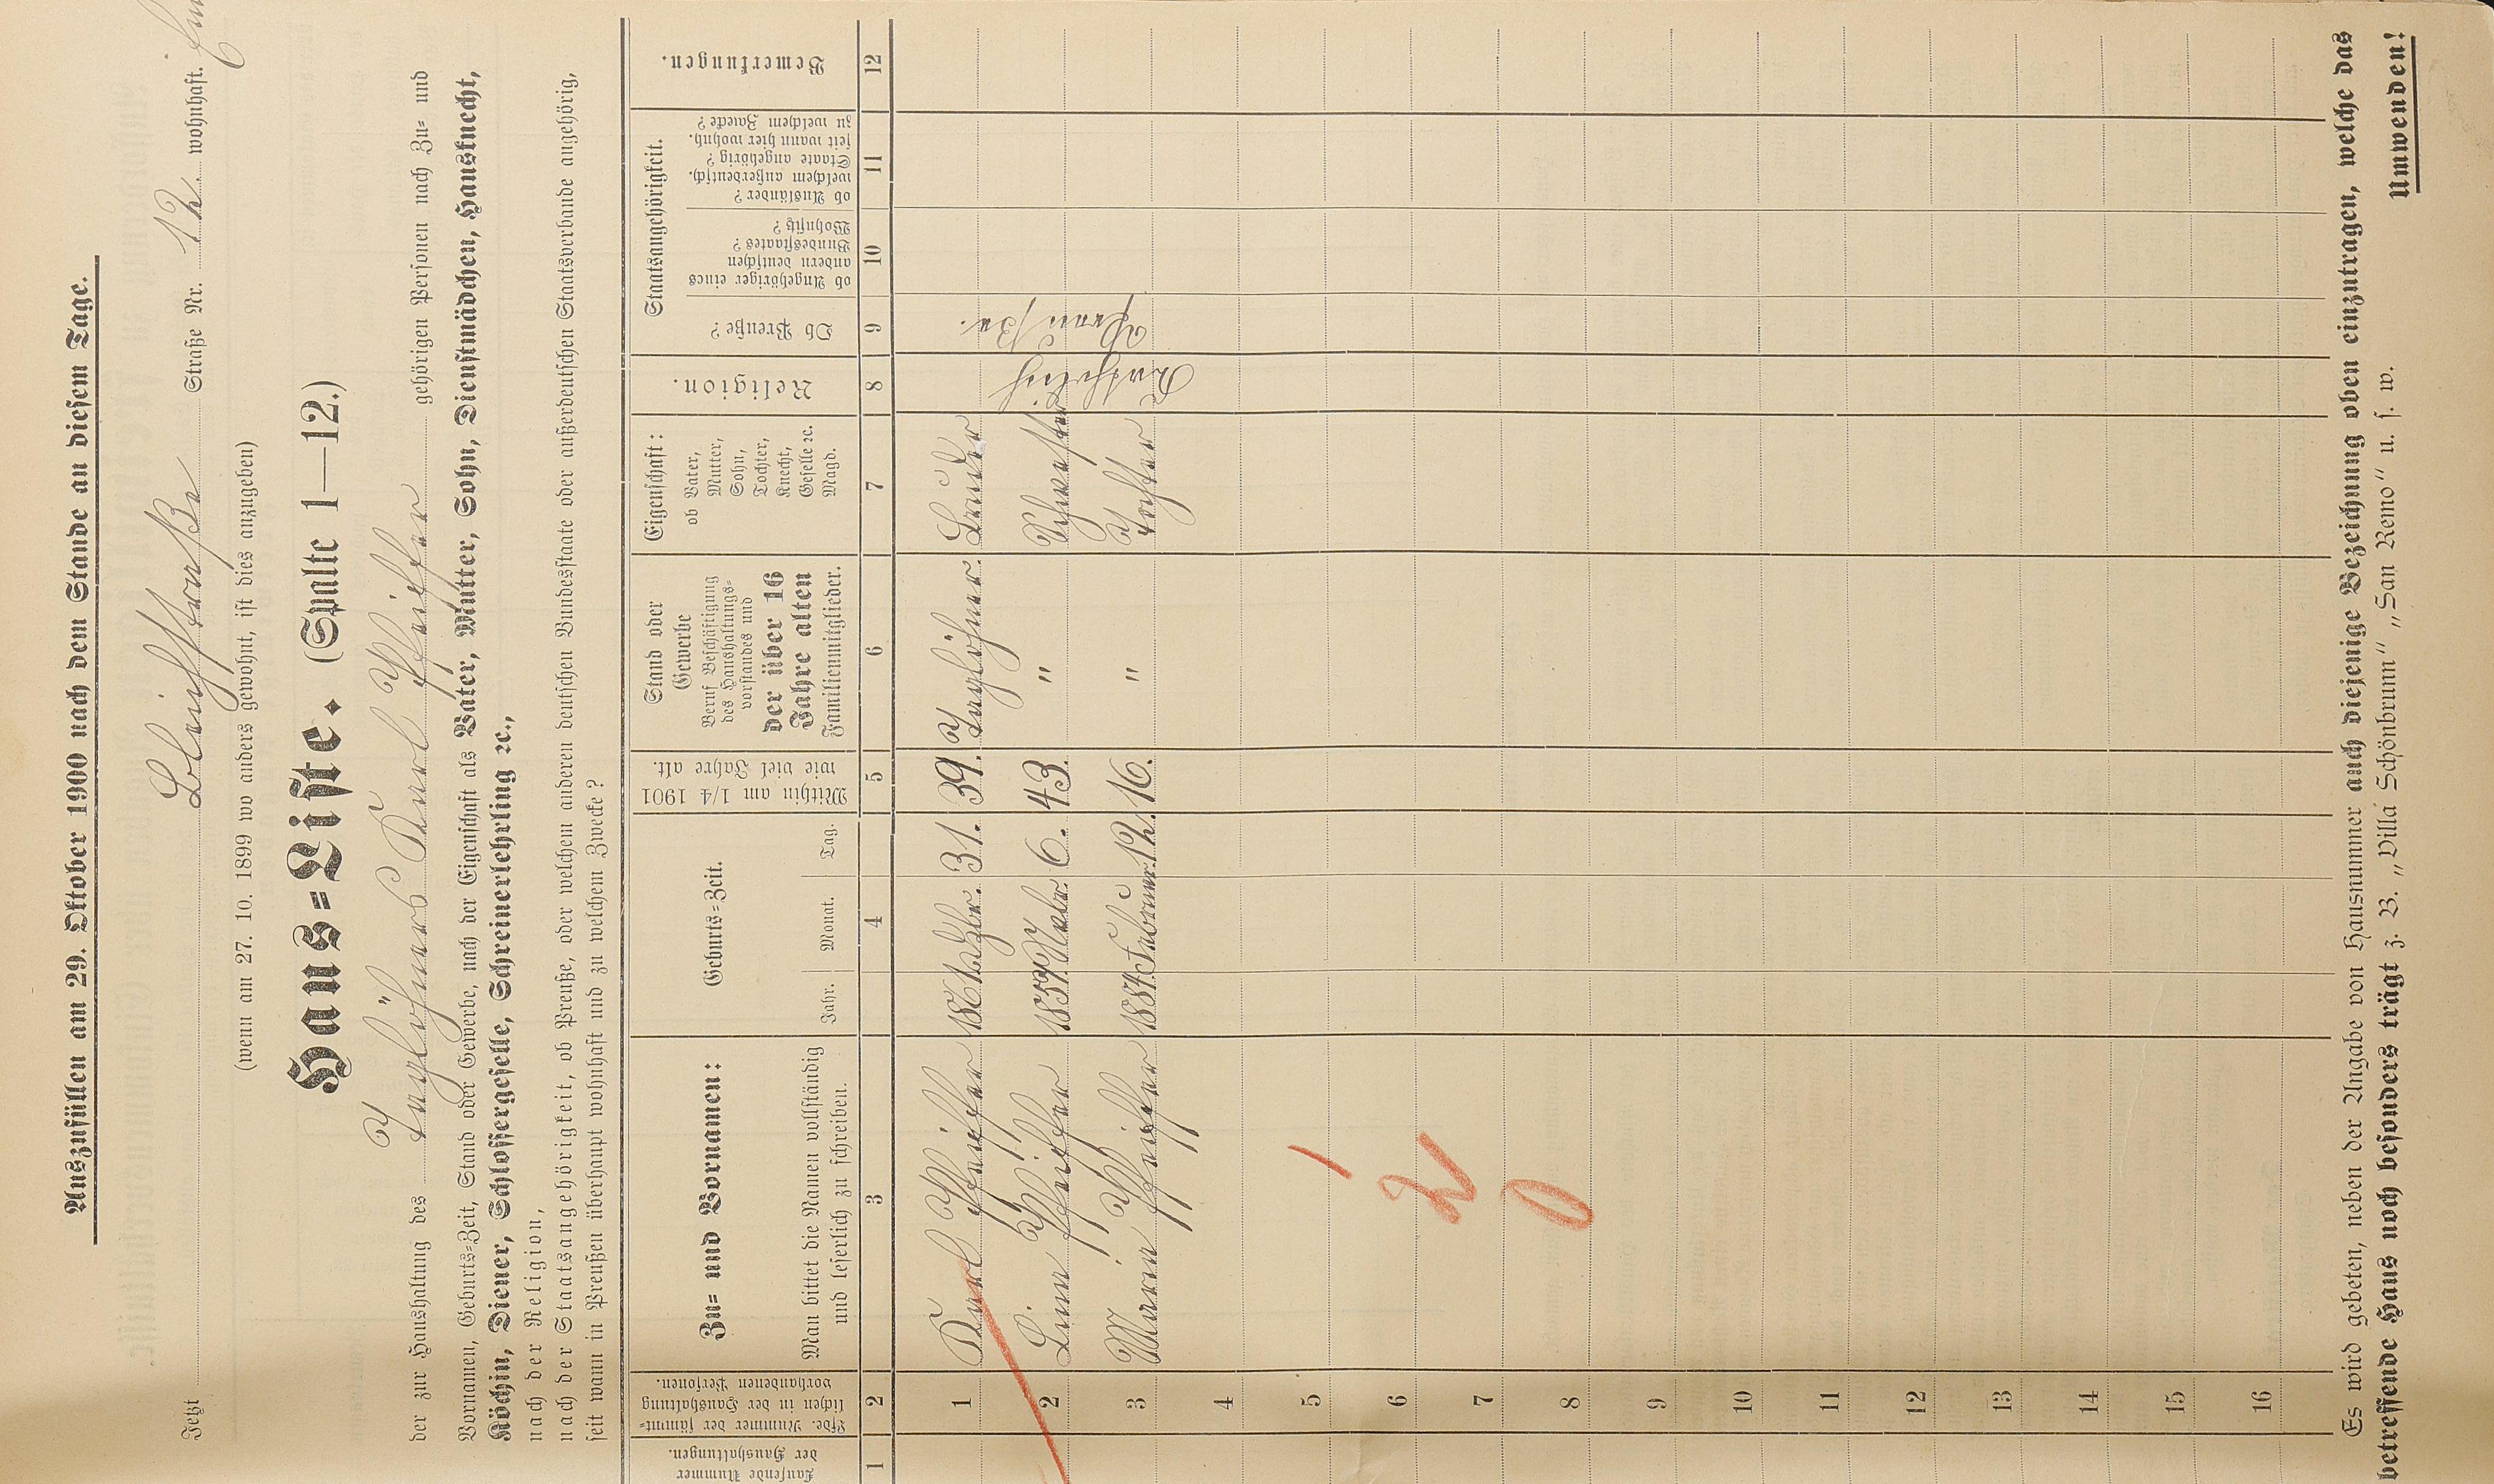 Auszufüllen am 29. Oktober 1900 nach dem Stande an diesem Tage.
Jetzt Bleichstraße Straße Nr. 12. wohnhaft.
(wenn am 27. 10. 1899 wo anders gewohnt, ist dies anzugeben)
Haus=Liste. (Spalte 1—12.)
der zur Haushaltung des Taglöhners Karl Pfeiffer gehörigen Personen nach Zu= und
Vornamen, Geburts=Zeit, Stand oder Gewerbe, nach der Eigenschaft als Vater, Mutter, Sohn, Dienstmädchen, Hausknecht,
Köchin, Diener, Schlossergeselle, Schreinerlehrling ꝛc.,
nach der Religion,
nach der Staatsangehörigkeit, ob Preuße, oder welchem anderen deutschen Bundesstaate oder außerdeutschen Staatsverbande angehörig,
seit wann in Preußen überhaupt wohnhaft und zu welchem Zwecke?
Laufende Nummer
der Haushaltungen.
Lfde. Nummer der sämmt=
lichen in der Haushaltung
vorhandenen Personen.
Zu= und Vornamen:
Man bittet die Namen vollständig
und leserlich zu schreiben.
Geburts=Zeit.
Jahr. Monat. Tag.
Mithin am 1/4 1901
wie viel Jahre alt.
Stand oder
Gewerbe
Beruf Beschäftigung
des Haushaltungs=
vorstandes und
der über 16
Jahre alten
Familienmitglieder.
Eigenschaft:
ob Vater,
Mutter,
Sohn,
Tochter,
Knecht,
Geselle ꝛc.
Magd.
Religion.
Staatsangehörigkeit.
Ob Preuße?
ob Angehöriger eines
andern deutschen
Bundesstaates?
Wohnsitz?
ob Ausländer?
welchem außerdeutsch.
Staate angehörig?
seit wann hier wohnh.
zu welchem Zwecke?
Bemerkungen.
1 2 3 4 5 6 7 8 9 10 11 12
1 Karl Pfeiffer 1861 Dzbr. 31. 39. Taglöhner. Bruder
2 Lina Pfeiffer 1857 Nvbr. 6. 43. " Schwester
3 Maria Pfeiffer 1884 Februar 12. 16. " Tochter
Katholisch
Preuße.
4
5
6
7
8
9
10
11
12
13
14
15
16
1
2
0
Es wird gebeten, neben der Angabe von Hausnummer auch diejenige Bezeichnung oben einzutragen, welche das
betreffende Haus noch besonders trägt z. B. „Villa Schönbrunn" „San Remo" u. s. w.
Umwenden!